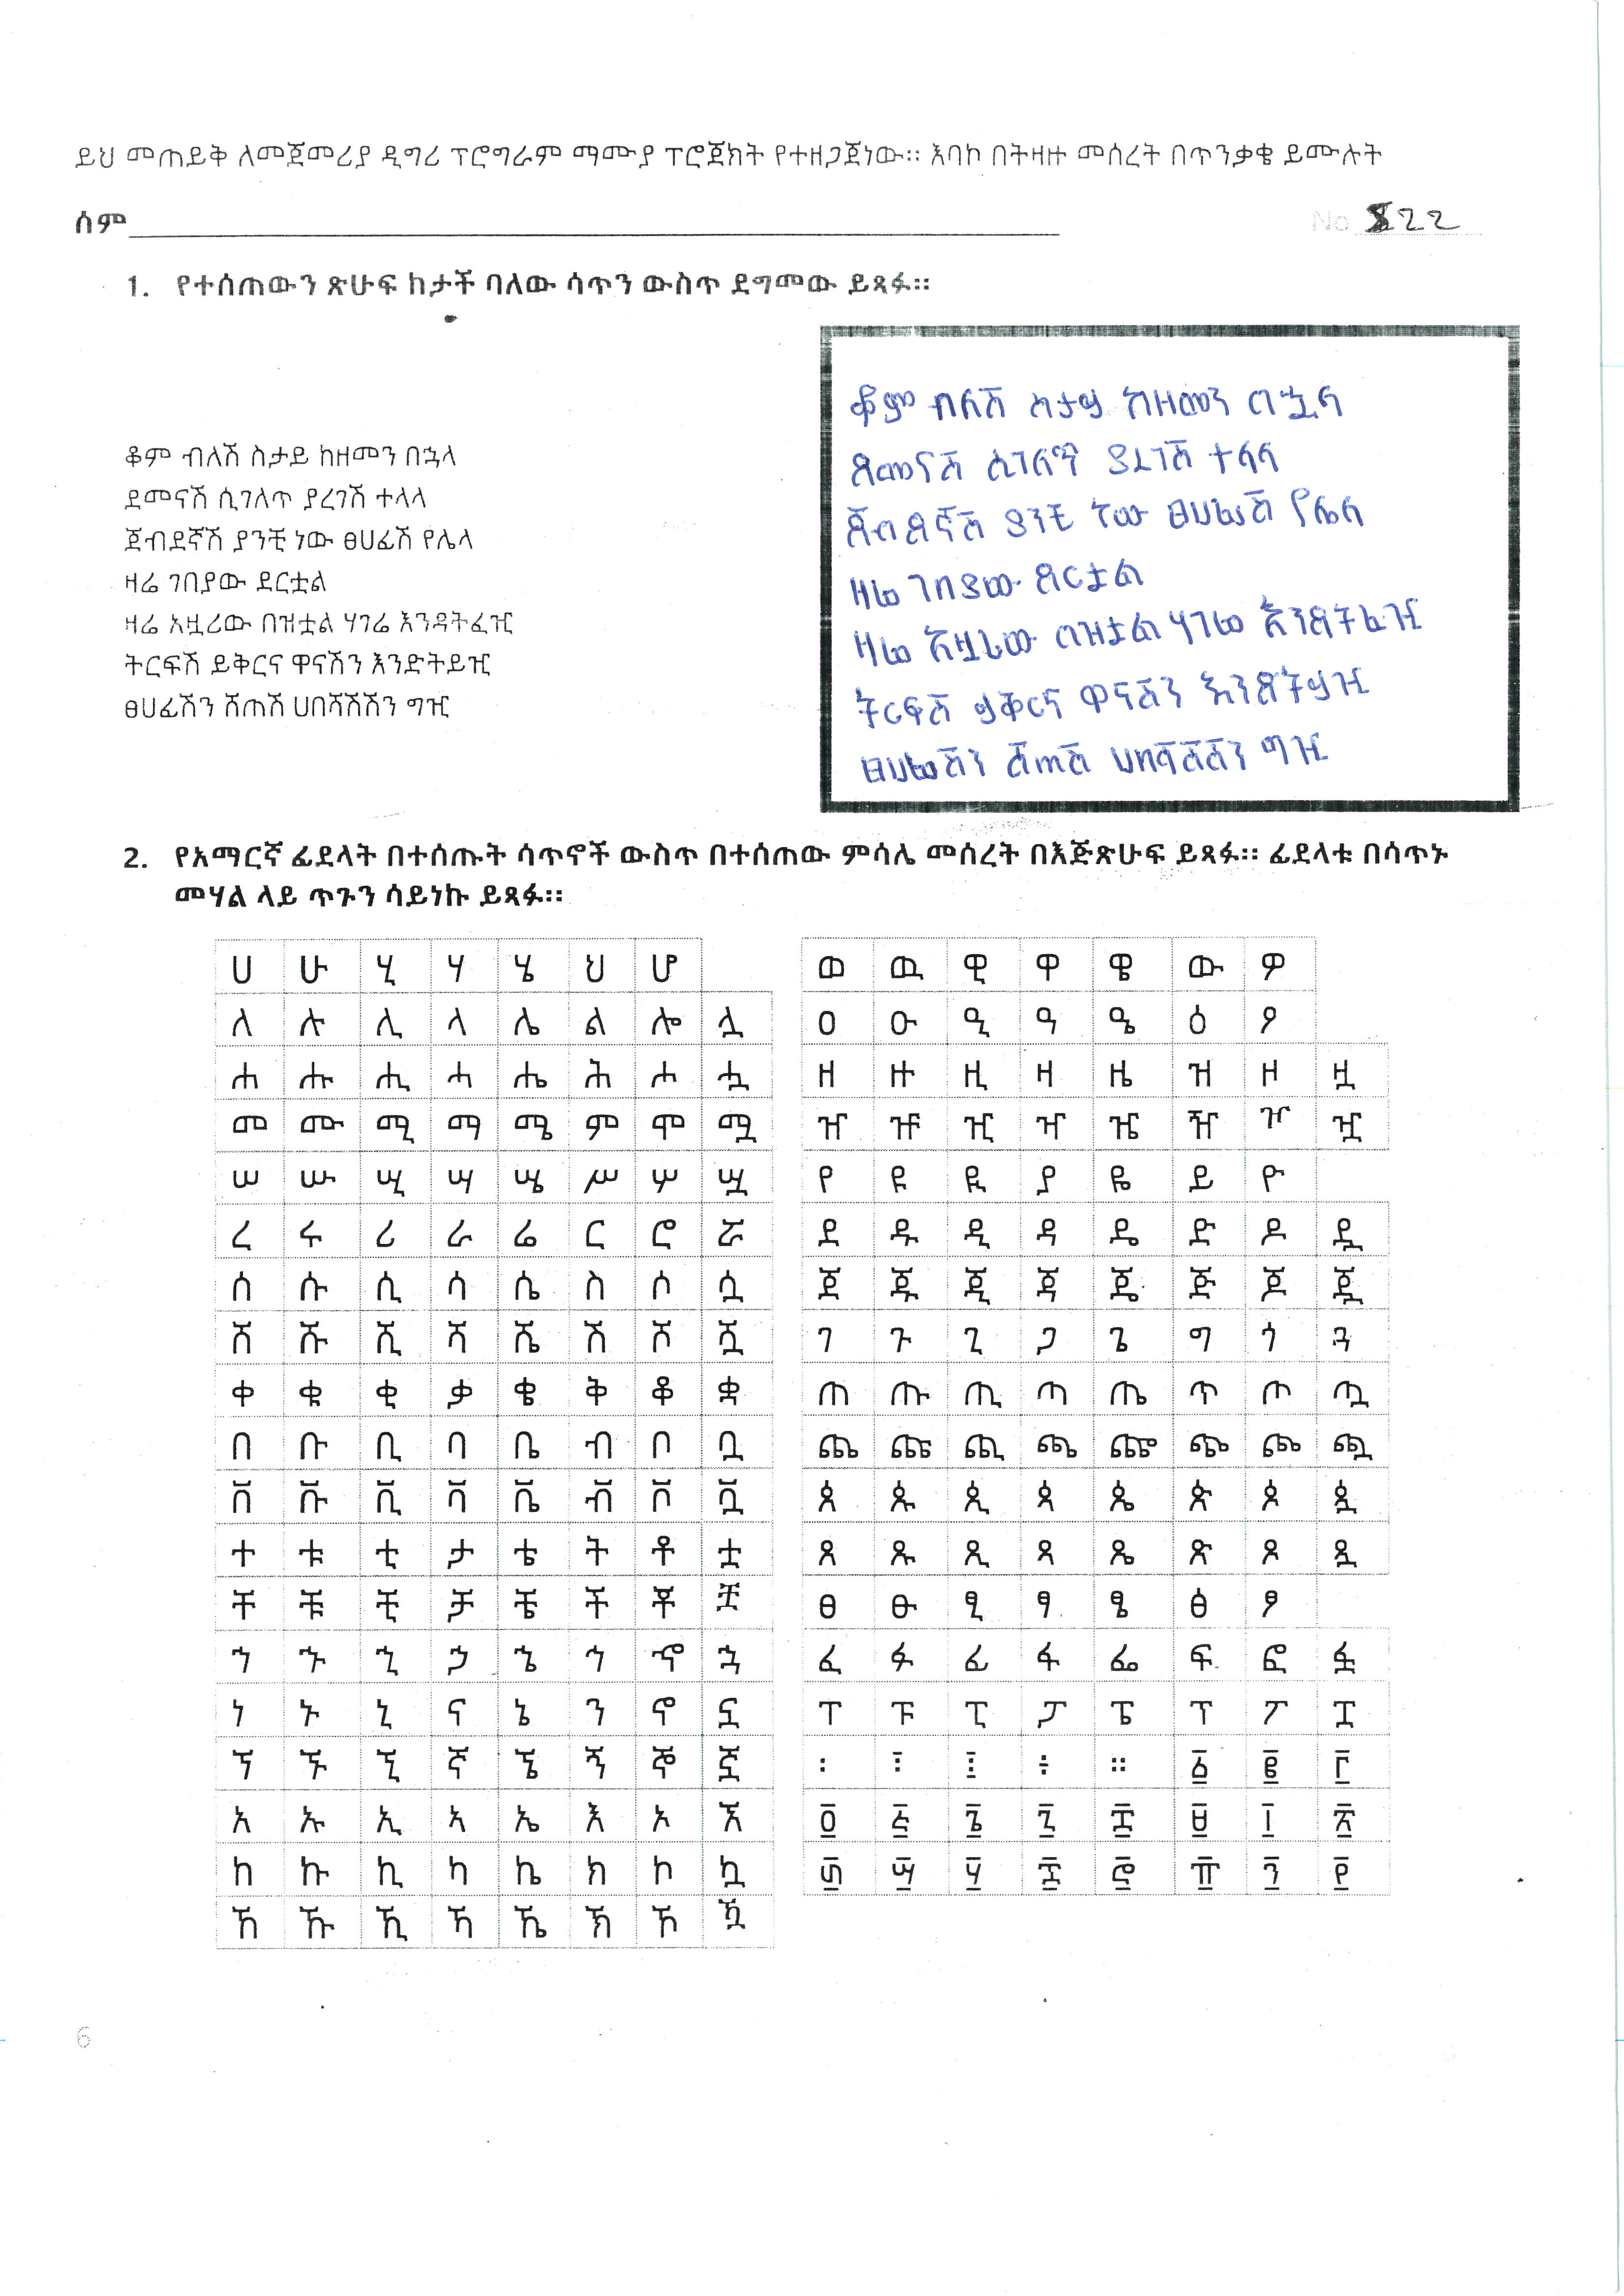 ይህ መጠይቅ ለመጀመሪያ ዲግሪ ፕሮግራም ማሙያ ፕሮጀክት የተዘጋጀነው። እባኮ በትዛዙ መሰረት በጥንቃቄ ይሙሉት
ሰም
No 822
1. የተሰጠውን ጽሁፍ ከታች ባለው ሳጥን ውስጥ ደግመው ይጻፉ።
ቆም ብለሽ ስታይ ከዘመን በኋላ
ደመናሽ ሲገለጥ ያረገሽ ተላላ
ጀብደኛሽ ያንቺ ነው ፀሀፊሽ የሌላ
ዛሬ ገበያው ደርቷል
ዛሬ አዟሪው በዝቷል ሃገሬ እንዳትፈዢ
ትርፍሽ ይቅርና ዋናሽን እንድትይዢ
ፀሀፊሽን ሸጠሽ ሀበሻሽሽን ግዢ
ቆም ብለሽ ስታይ ከዘመን በኋላ
ደመናሽ ሲገለጥ ያረገሽ ተላላ
ጀብደኛሽ ያንቺ ነው ፀሀፊሽ የሌላ
ዛሬ ገበያው ደርቷል
ዛሬ አዟሪው በዝቷል ሃገሬ እንዳትፈዢ
ትርፍሽ ይቅርና ዋናሽን እንድትይዢ
ፀሀፊሽን ሸጠሽ ሀበሻሽሽን ግዢ
2. የአማርኛ ፊደላት በተሰጡት ሳጥኖች ውስጥ በተሰጠው ምሳሌ መሰረት በእጅጽሁፍ ይጻፉ። ፊደላቱ በሳጥኑ
መሃል ላይ ጥጉን ሳይነኩ ይጻፉ።
ሀ ሁ ሂ ሃ ሄ ህ ሆ
ለ ሉ ሊ ላ ሌ ል ሎ ሏ
ሐ ሑ ሒ ሓ ሔ ሕ ሖ ሗ
መ ሙ ሚ ማ ሜ ም ሞ ሟ
ሠ ሡ ሢ ሣ ሤ ሥ ሦ ሧ
ረ ሩ ሪ ራ ሬ ር ሮ ሯ
ሰ ሱ ሲ ሳ ሴ ስ ሶ ሷ
ሸ ሹ ሺ ሻ ሼ ሽ ሾ ሿ
ቀ ቁ ቂ ቃ ቄ ቅ ቆ ቋ
በ ቡ ቢ ባ ቤ ብ ቦ ቧ
ቨ ቩ ቪ ቫ ቬ ቭ ቮ ቯ
ተ ቱ ቲ ታ ቴ ት ቶ ቷ
ቸ ቹ ቺ ቻ ቼ ች ቾ ቿ
ኀ ኁ ኂ ኃ ኄ ኅ ኆ ኋ
ነ ኑ ኒ ና ኔ ን ኖ ኗ
ኘ ኙ ኚ ኛ ኜ ኝ ኞ ኟ
አ ኡ ኢ ኣ ኤ እ ኦ ኧ
ከ ኩ ኪ ካ ኬ ክ ኮ ኳ
ኸ ኹ ኺ ኻ ኼ ኽ ኾ ዃ
ወ ዉ ዊ ዋ ዌ ው ዎ
ዐ ዑ ዒ ዓ ዔ ዕ ዖ
ዘ ዙ ዚ ዛ ዜ ዝ ዞ ዟ
ዠ ዡ ዢ ዣ ዤ ዥ ዦ ዧ
የ ዩ ዪ ያ ዬ ይ ዮ
ደ ዱ ዲ ዳ ዴ ድ ዶ ዷ
ጀ ጁ ጂ ጃ ጄ ጅ ጆ ጇ
ገ ጉ ጊ ጋ ጌ ግ ጎ ጓ
ጠ ጡ ጢ ጣ ጤ ጥ ጦ ጧ
ጨ ጩ ጪ ጫ ጬ ጭ ጮ ጯ
ጰ ጱ ጲ ጳ ጴ ጵ ጶ ጷ
ጸ ጹ ጺ ጻ ጼ ጽ ጾ ጿ
ፀ ፁ ፂ ፃ ፄ ፅ ፆ
ፈ ፉ ፊ ፋ ፌ ፍ ፎ ፏ
ፐ ፑ ፒ ፓ ፔ ፕ ፖ ፗ
፡ ፣ ፤ ÷ ። ፩ ፪ ፫
፬ ፭ ፮ ፯ ፰ ፱ ፲ ፳
፴ ፵ ፶ ፷ ፸ ፹ ፺ ፻
6